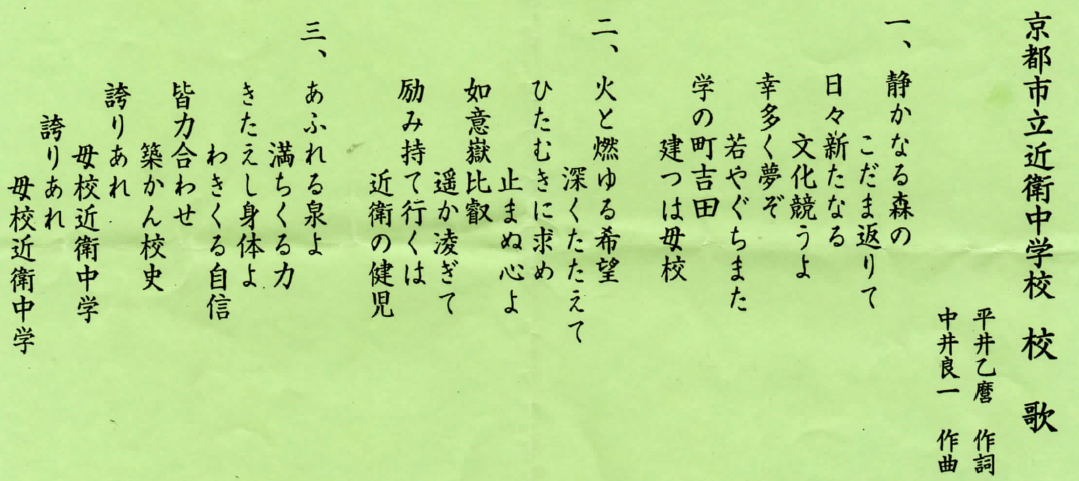 京都市立近衛中学校 校歌
平井乙麿 作詞
中井良一 作曲
一、静かなる森の
こだま返りて
日々新たなる
文化競うよ
幸多く夢ぞ
若やぐちまた
学の町吉田
建つは母校
二、火と燃ゆる希望
深くたたえて
ひたむきに求め
止まぬ心よ
如意嶽比叡
遥か凌ぎて
励み持て行くは
近衛の健児
三、あふれる泉よ
満ちくる力
きたえし身体よ
わきくる自信
皆力合わせ
築かん校史
誇りあれ
母校近衛中学
誇りあれ
母校近衛中学